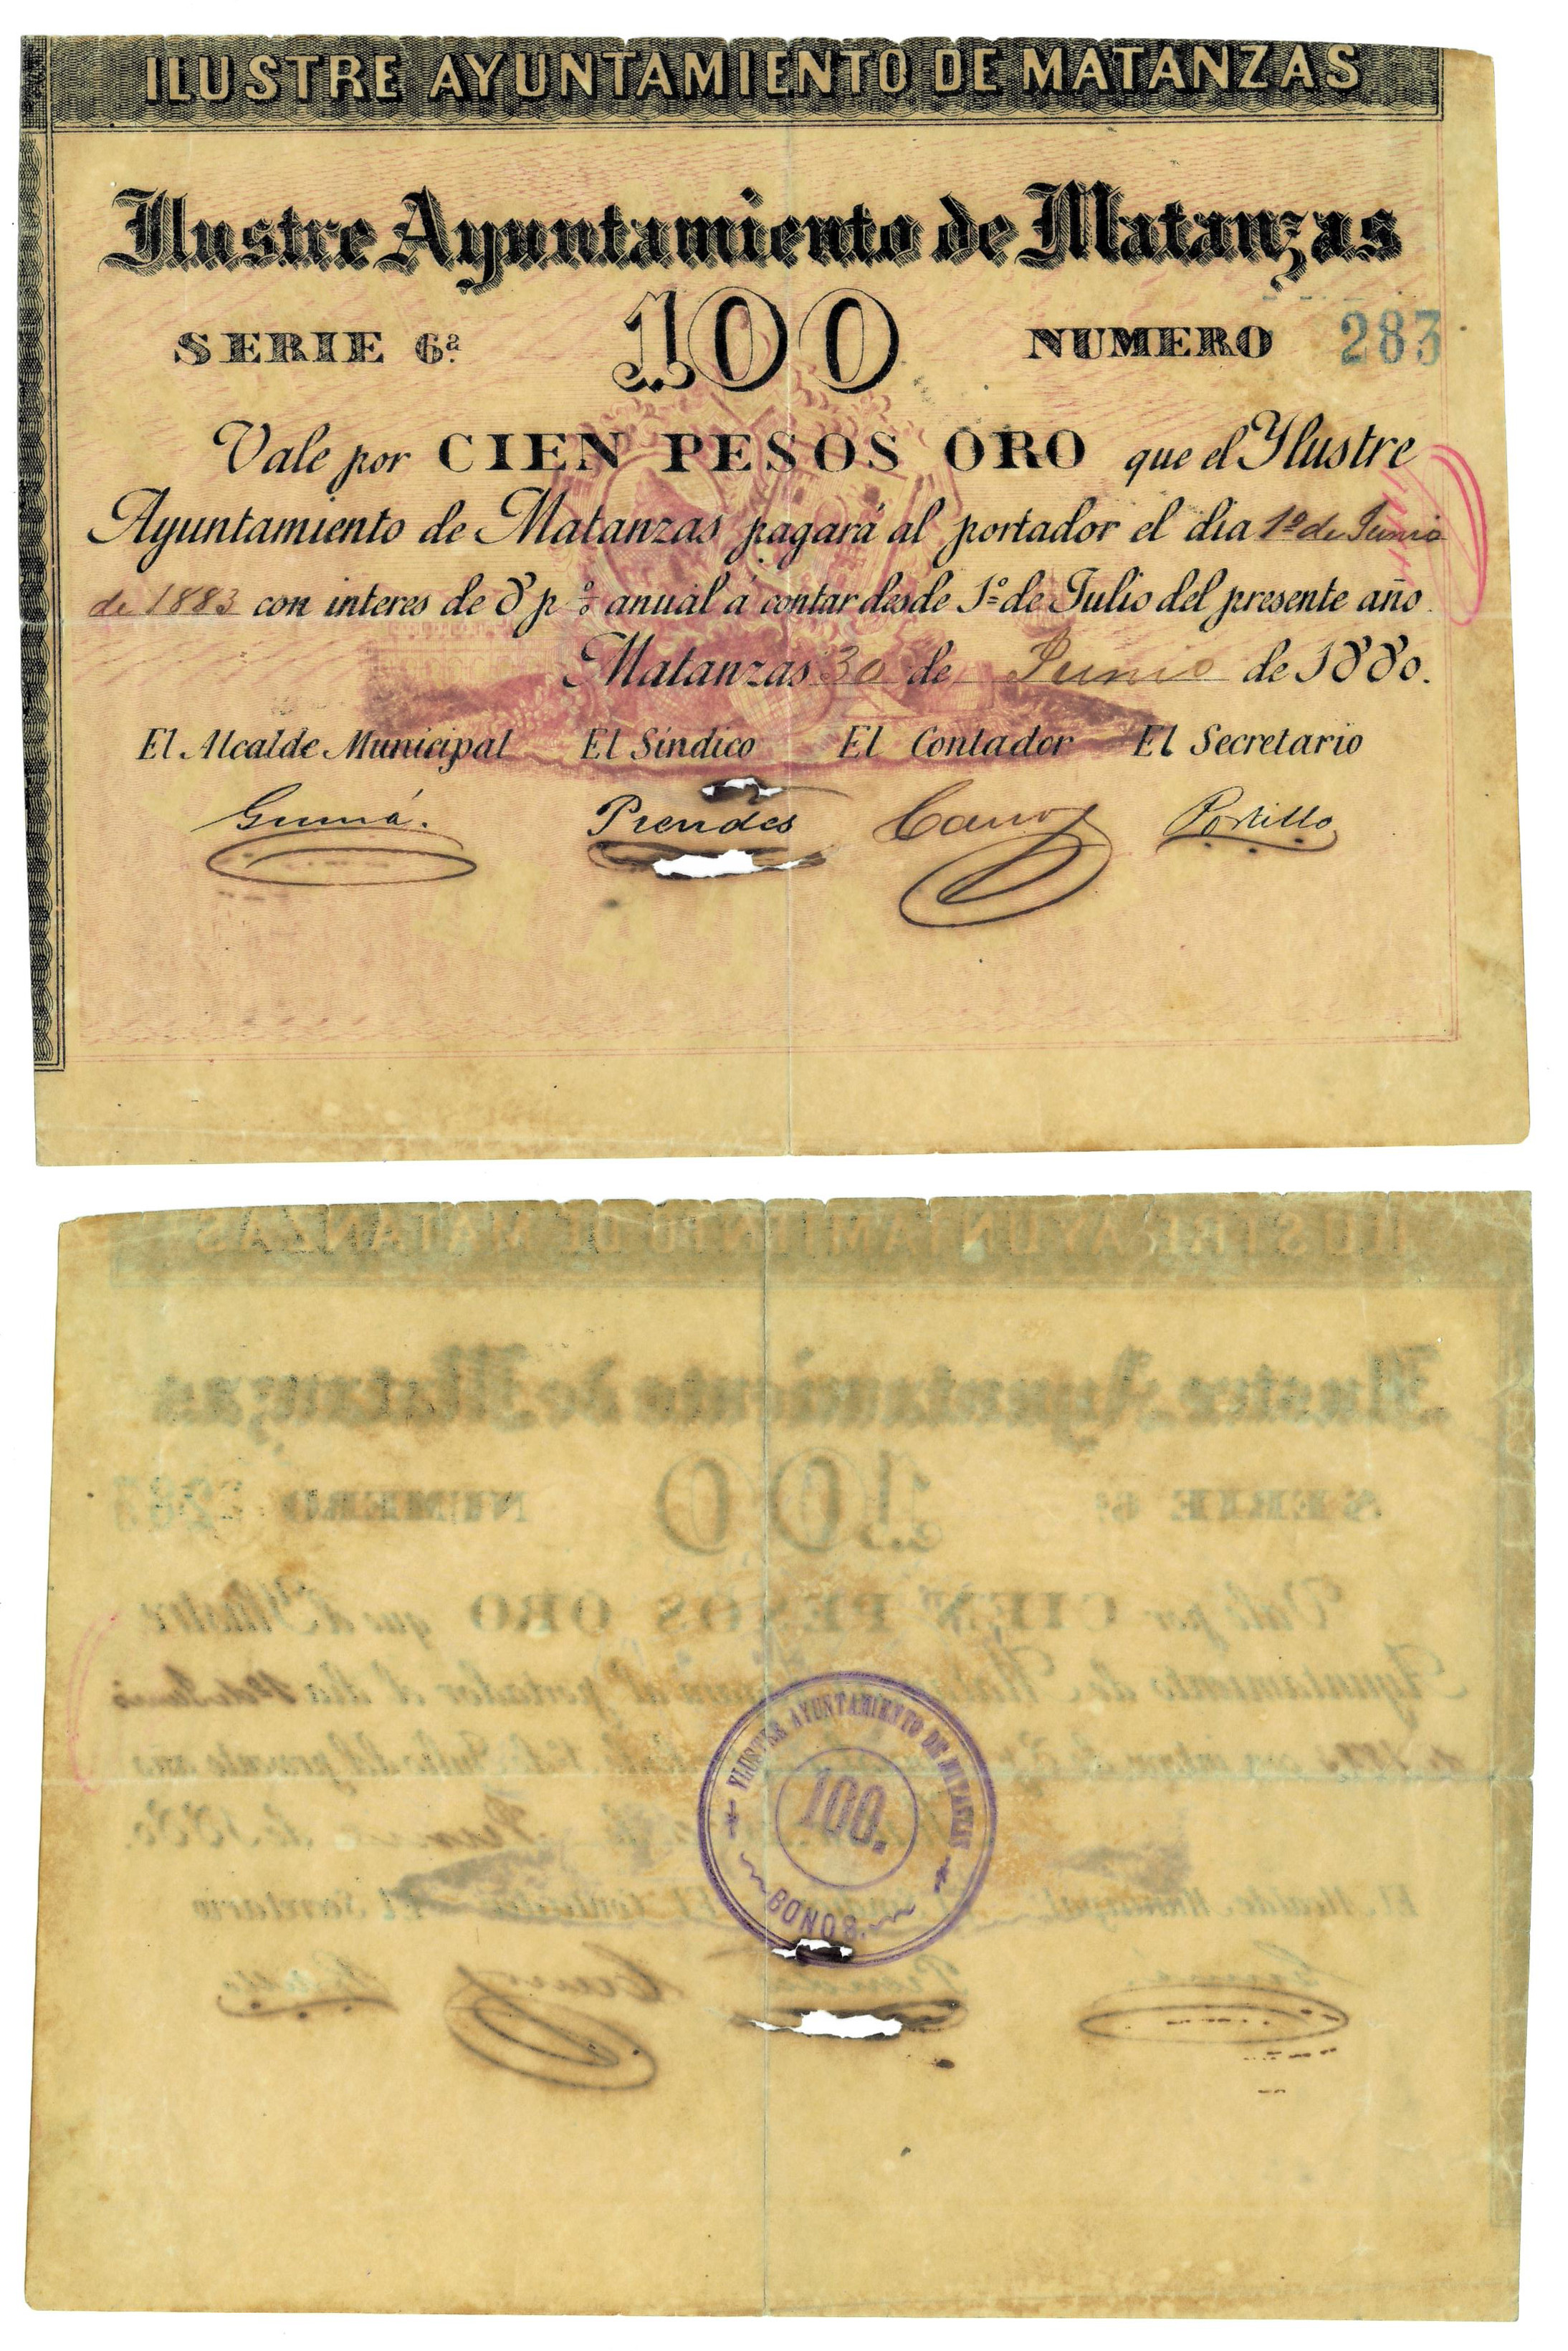 ILUSTRE AYUNTAMIENTO DE MATANZAS
Ilustre Ayuntamiento de Matanzas
SERIE 6ª 100 NUMERO 283
Vale por CIEN PESOS ORO que el Ylustre
Ayuntamiento de Matanzas pagará al portador el dia 1º de Junio
de 1883 con interes de 8 p% anual á contar desde 1º de Julio del presente año.
Matanzas 30 de Junio de 1880.
El Alcalde Municipal El Síndico El Contador El Secretario
Gumá. Prendes Portillo
YLUSTRE AYUNTAMIENTO DE MATANZAS
100.
BONOS.